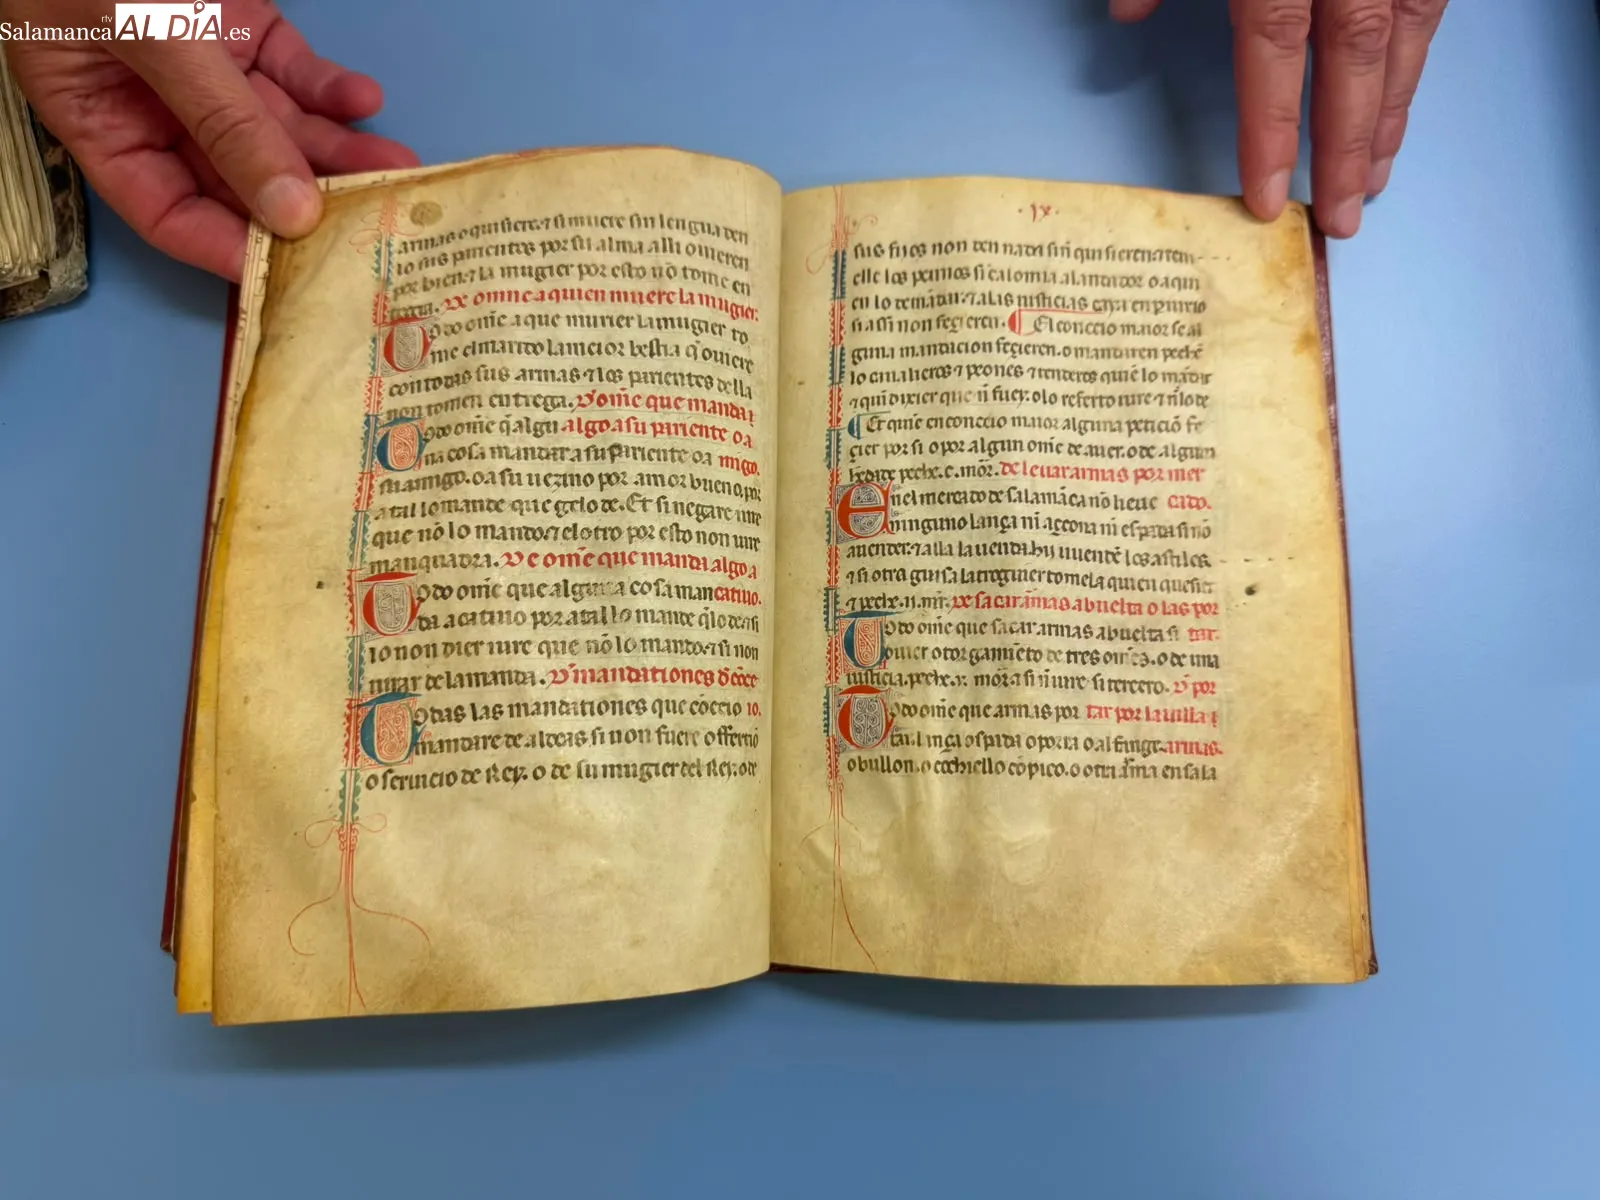 Salamanca rtv AL DÍA .es
armas o quisiere. ⁊ si muere sin lengua den
lo sus parientes por su alma alli o uieren
por bien. ⁊ la mugier por esto nō tome en
trega. De omne a quien muere la mugier.
Todo om̄e a que murier la mugier to
me el marido la meior bestia q̄ ouiere
con todas sus armas ⁊ los parientes della
non tomen entrega. D'om̄e que manda
Todo om̄e q̄ algu algo a su pariente o a
na cosa mandar a su pariente o a migo.
su amigo. o a su uezino por amor bueno, por
a tal lo mande que gelo de. Et si negare iure
que nō lo mando. ⁊ el otro por esto non iure
manquadra. De om̄e que manda algo a
Todo om̄e que alguna cosa man catiuo.
da a catiuo por a tal lo mande q̄ lo de. ⁊ si
lo non dier iure que nō lo mando. ⁊ si non
de la manda. D' mandationes d' cōce
Todas las mandationes que cōceio io.
mandare de aldeas si non fuere offertiō
o seruicio de Rey. o de su mugier del Rey. o de
. ix .
sus fijos non den nada sin̄ qui sieren. ⁊ tem
elle los peimos si calomia al andador o a quī
en lo demādar. ⁊ a las iusticias caya en periurio
si assi non fezieren. ¶ El conceio maior se al
guna mandacion fezieren. o mandaren peché
lo caualleros ⁊ peones ⁊ tenderos quiē lo mādar
⁊ qui dixier que nō fuer. o lo referto iure ⁊ nō lo de
¶ Et quiē en conceio maior alguna peticiō fe
zier por si o por algun om̄e de auer. o de algun
peche. c. mōr. de leuar armas por mer
En el mercado de salamāca nō lieue cado.
ninguno lança nī azcona nī espada si nō
a uender. ⁊ alla la uenda hu uendē los astiles
⁊ si otra guisa la troguier tomela quien quesier
⁊ peche. ii. mr̄. De sacar armas a buelta o las por
Todo om̄e que sacar armas a buelta si tar.
ouier otorgamiēto de tres om̄es. o de una
iusticia. peche. v. mōr. ⁊ si nō iure si tercero. D' por
Todo om̄e que armas por tar por la uilla
tar. lāça o spada o porra o alfinge armas.
o bullon. o cochiello cō pico. o otra arma en sala